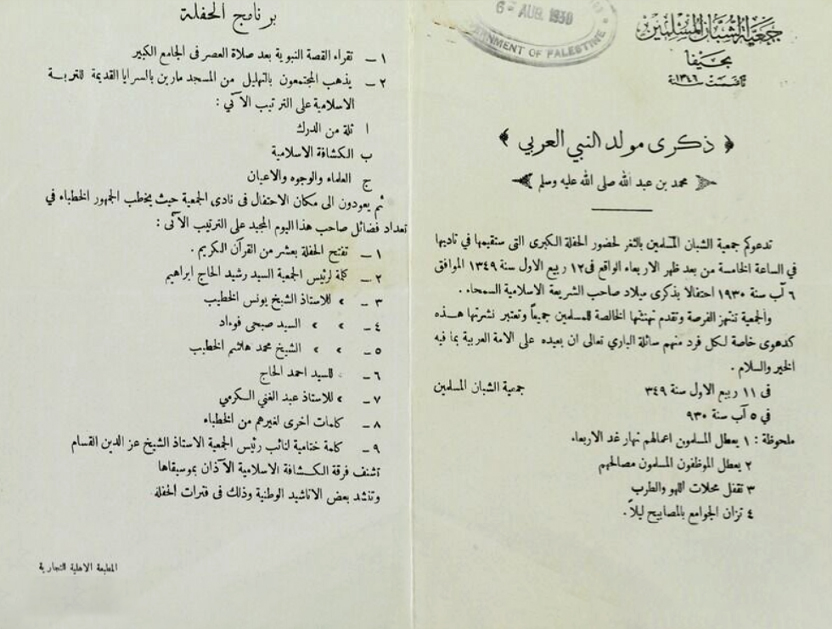 جمعية الشبان المسلمين
بحيفا
تأسست سنة ١٣٤٦
6 - AUG. 1930
GOVERNMENT OF PALESTINE
﴿ ذكرى مولد النبي العربي ﴾
محمد بن عبد الله صلى الله عليه وسلم
تدعوكم جمعية الشبان المسلمين بالثغر لحضور الحفلة الكبرى التى ستقيمها في ناديها
في الساعة الخامسة من بعد ظهر الاربعاء الواقع فى ١٢ ربيع الاول سنة ١٣٤٩ الموافق
٦ آب سنة ١٩٣٠ احتفالا بذكرى ميلاد صاحب الشريعة الاسلامية السمحاء .
والجمعية تنتهز الفرصة وتقدم تهنئتها الخالصة للمسلمين جميعاً وتعتبر نشرتها هــذه
كدعوى خاصة لـكل فرد منهم سائلة الباري تعالى ان يعيده على الامة العربية بما فيه
الخير والسلام .
فى ١١ ربيع الاول سنة ٣٤٩ جمعية الشبان المسلمين
في ٥ آب سنة ٩٣٠
ملحوظة : ١ يعطل المسلمون اعمالهم نهار غد الاربعاء
٢ يعطل الموظفون المسلمون مصالحهم
٣ تقفل محلات اللهو والطرب
٤ تزان الجوامع بالمصابيح ليلاً .
برنامج الحفلة
١ ــ تقراء القصة النبوية بعد صلاة العصر فى الجامع الكبير
٢ ــ يذهب المجتمعون بالتهليل من المسجد مارين بالسرايا القديمة للتربــة
الاسلامية على التر تيب الآتي :
ا ثلة من الدرك
ب الكشافة الاسلامية
ج العلماء والوجوه والاعيان
ثم يعودون الى مكان الاحتفال فى نادى الجمعية حيث يخطب الجمهور الخطباء في
تعداد فضائل صاحب هذا اليوم المجيد على الترتيب الآتى :
١ ــ تفتح الحفلة بعشر من القرآن الكريم .
٢ ــ كلمة لرئيس الجمعية السيد رشيد الحاج ابراهيم
٣ ــ » للاستاذ الشيخ يونس الخطيب
٤ ــ » » السيد صبحى فوءاد
٥ ــ » » الشيخ محمد هاشم الخطيب
٦ ــ » للسيد احمد الحاج
٧ ــ » للاستاذ عبد الغني الكرمي
٨ ــ كلمات اخرى لغيرهم من الخطباء
٩ ــ كلمة ختامية لنائب رئيس الجمعية الاستاذ الشيخ عز الدين القسام
تشنف فرقة الكــشافة الاسلامية الآذان بموسيقاها
وتنشد بعض الاناشيد الوطنية وذلك فى فترات الحفلة
المطبعة الاهلية التجارية